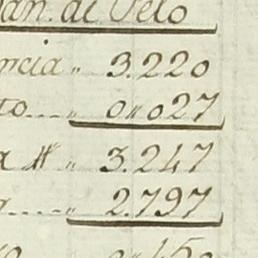 an. di Velo
ncia „ 3.220
to.... „ 0„027
a # „ 3.247
.... „ 2.797
0„450